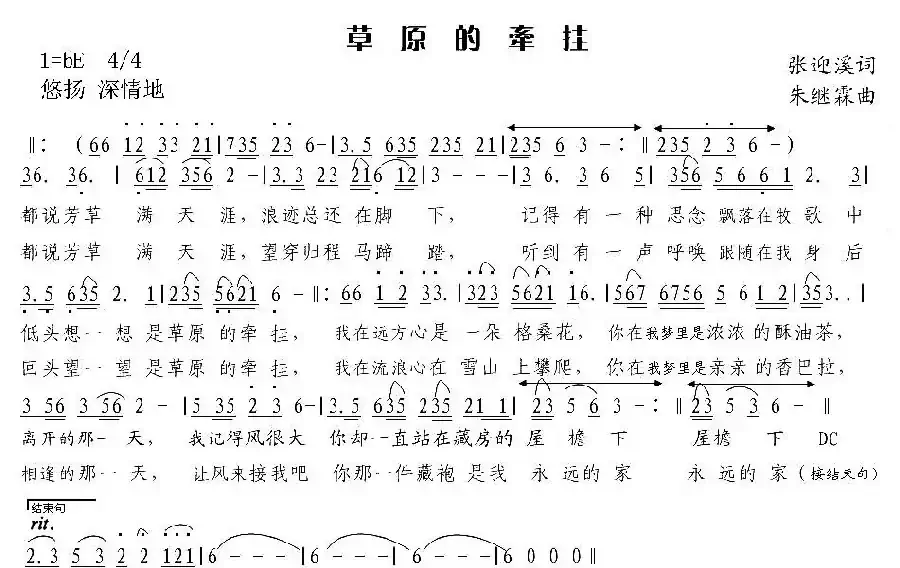 草原的牵挂
1=bE 4/4
悠扬 深情地
张迎溪词
朱继霖曲
‖: (66 12 33 21|735 23 6-|3.5 635 235 21|235 6 3 -:‖235 2 3 6 -)
36. 36. |612 356 2 -|3.3 23 216 12|3 - - -|3 6. 3 6 5|356 5 6 6 1 2. 3|
都说芳草 满 天 涯, 浪迹总还 在脚 下, 记得 有 一 种 思念 飘落在牧 歌 中
都说芳草 满 天 涯, 望穿归程 马蹄 踏, 听到 有 一 声 呼唤 跟随在我 身 后
3.5 635 2. 1|235 5621 6 -‖: 66 1 2 33.|323 5621 16.|567 6756 5 612 35|3..|
低头想 一 想 是草原 的牵 挂, 我在远方心是 一朵 格桑花, 你在我梦里是浓浓 的酥油茶,
回头望 一 望 是草原 的牵 挂, 我在流浪心在 雪山 上攀爬, 你在我梦里是亲亲 的香巴拉,
3 56 3 56 2 -|5 35 2 3 6-|3.5 635 235 21 1|23 5 6 3 -:‖23 5 3 6 -‖
离开的那一 天, 我记得风很大 你却一直站在藏房的 屋 檐 下 屋檐 下 DC
相逢的那一 天, 让风来接我吧 你那一件藏袍 是我 永 远的 家 永 远 的 家(接结束句)
结束句
rit.
2.3 5 3 2 2 121|6 - - -|6 - - -|6 - - -|6 0 0 0‖